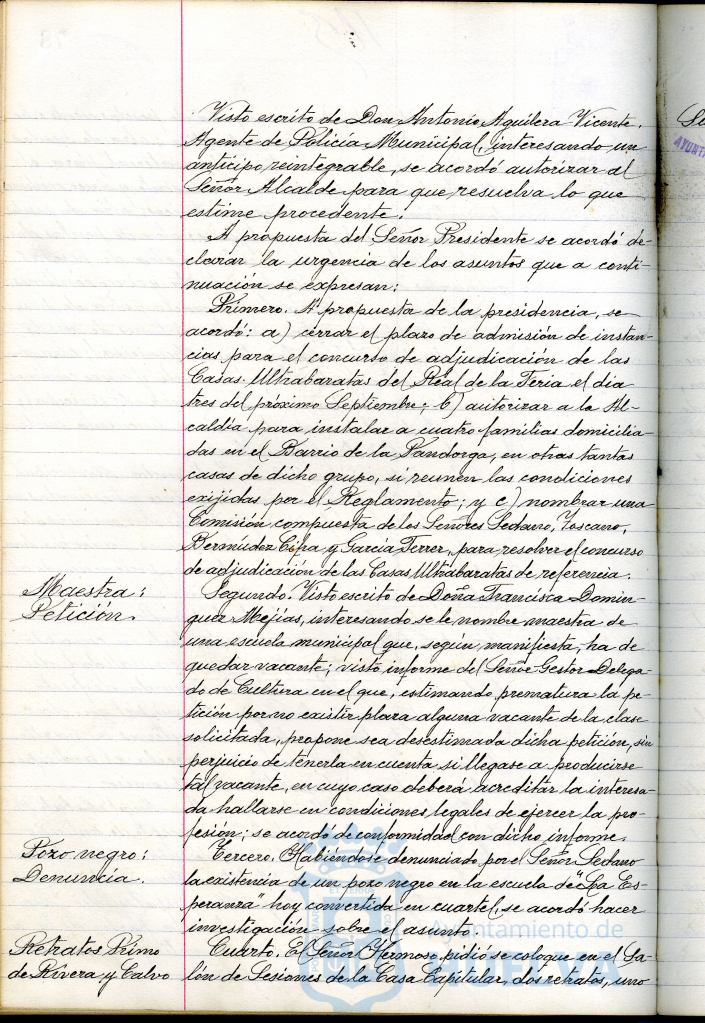 Visto escrito de Don Antonio Aguilera Vicente,
Agente de Policía Municipal, interesando un
anticipo reintegrable, se acordó autorizar al
Señor Alcalde para que resuelva lo que
estime procedente.
A propuesta del Señor Presidente se acordó de-
clarar la urgencia de los asuntos que a conti-
nuación se expresan:
Primero. A propuesta de la presidencia, se
acordó: a) cerrar el plazo de admisión de instan-
cias para el concurso de adjudicación de las
Casas Ultrabaratas del Real de la Feria el dia
tres del próximo Septiembre; b) autorizar a la Al-
caldía para instalar a cuatro familias domicilia-
das en el Barrio de la Pandorga, en otras tantas
casas de dicho grupo, si reunen las condiciones
exijidas por el Reglamento; y c) nombrar una
Comisión compuesta de los Señores Sedano, Toscano,
Bermúdez Cifra y García Ferrer, para resolver el concurso
de adjudicación de las Casas Ultrabaratas de referencia.
Maestra:
Petición.
Segundo. Visto escrito de Doña Francisca Domin-
guez Mejías, interesando se le nombre maestra de
una escuela municipal que, según manifiesta, ha de
quedar vacante; visto informe del Señor Gestor Delega-
do de Cultura en el que, estimando prematura la pe-
tición por no existir plaza alguna vacante de la clase
solicitada, propone sea desestimada dicha petición, sin
perjuicio de tenerla en cuenta si llegase a producirse
tal vacante, en cuyo caso deberá acreditar la interesa-
da hallarse en condiciones legales de ejercer la pro-
fesión; se acordó de conformidad con dicho informe.
Pozo negro:
Denuncia.
Tercero. Habiéndose denunciado por el Señor Sedano
la existencia de un pozo negro en la escuela de "La Es-
peranza" hoy convertida en cuartel, se acordó hacer
investigación sobre el asunto.
Retratos Primo
de Rivera y Calvo
Cuarto. El Señor Hermoso pidió se coloque en el Sa-
lón de Sesiones de la Casa Capitular, dos retratos, uno
Ayuntamiento de
HUELVA